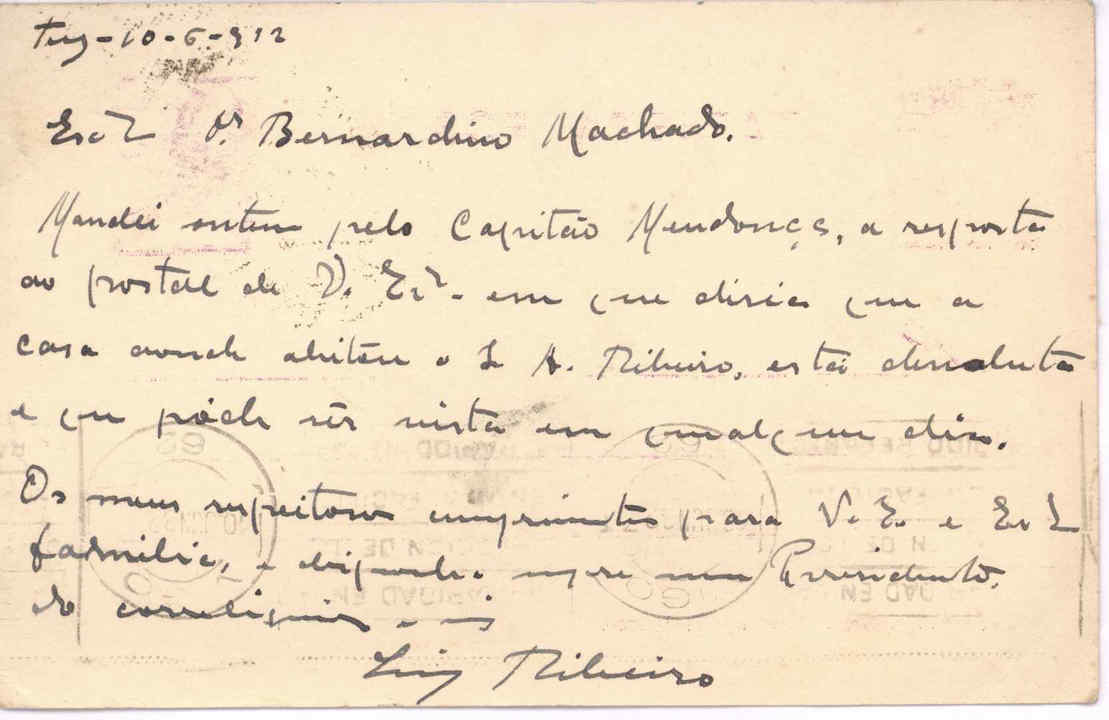 Tuy-10-6-932
Exmº Dr. Bernardino Machado.
Mandei ontem pelo Capitão Mendonça, a resposta
ao postal de V. Exª. em que disia que a
casa aonde abitou o A. Ribeiro, está
e que póde sêr vista em qualquer dia.
Os meus respeitosos cumprimentos para V. E. e Exmª
familia, e disponha sempre meu Presidente,
do correligionario e
Luiz Ribeiro